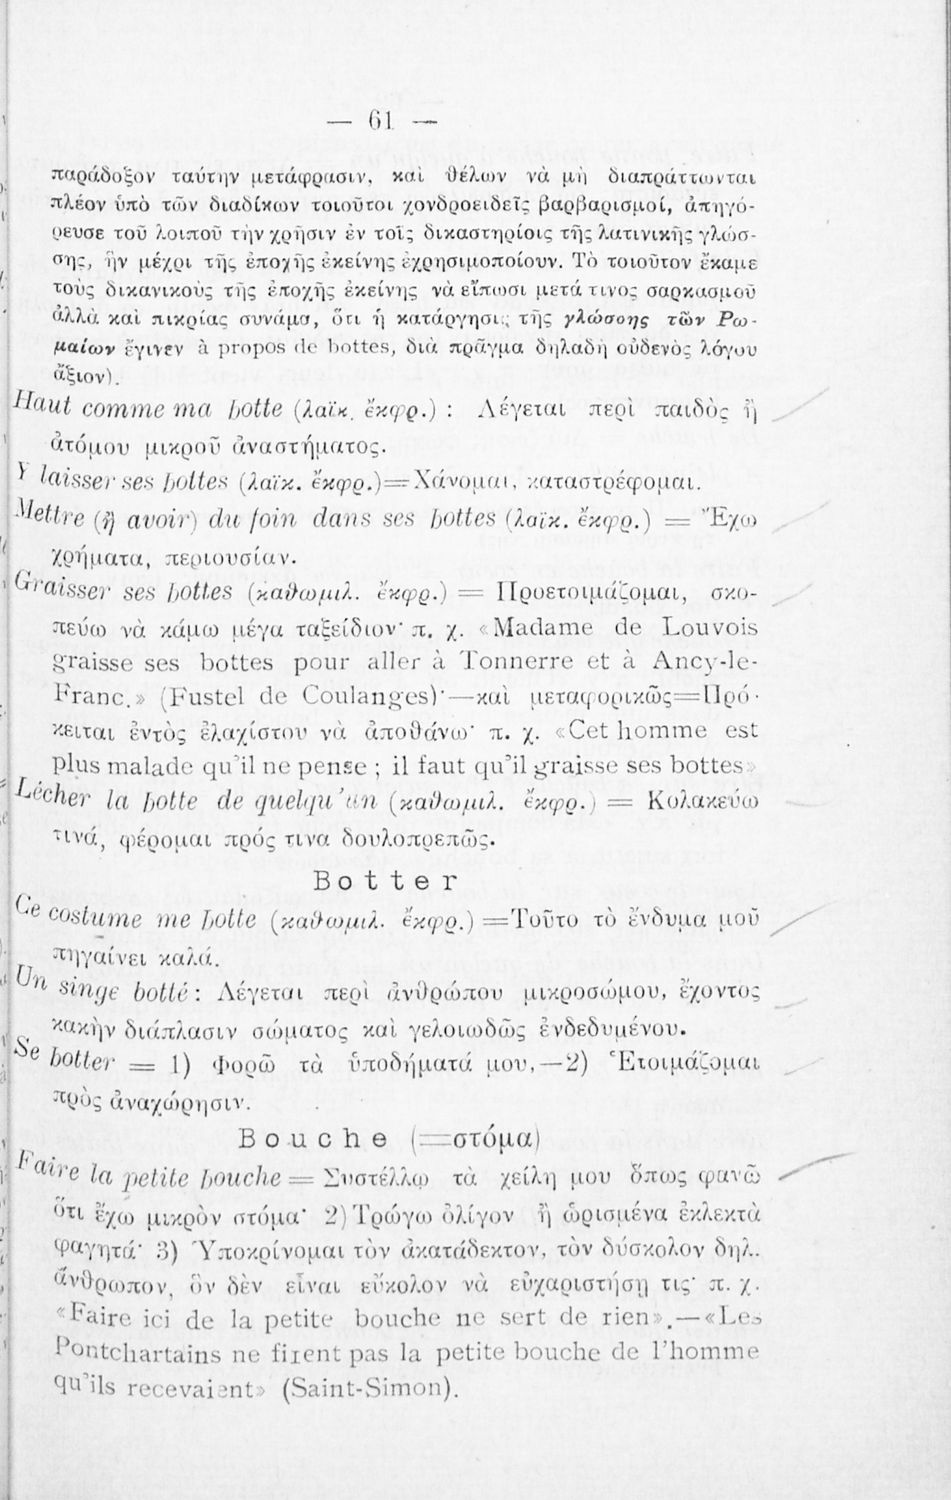 — 61 —
παράδοξον ταύτην μετάφρασιν, καὶ θέλων νὰ μὴ διαπράττωνται
πλέον ὑπὸ τῶν διαδίκων τοιοῦτοι χονδροειδεῖς βαρβαρισμοί, ἀπηγό-
ρευσε τοῦ λοιποῦ τὴν χρῆσιν ἐν τοῖς δικαστηρίοις τῆς λατινικῆς γλώσ-
σης, ἣν μέχρι τῆς ἐποχῆς ἐκείνης ἐχρησιμοποίουν. Τὸ τοιοῦτον ἔκαμε
τοὺς δικανικοὺς τῆς ἐποχῆς ἐκείνης νὰ εἴπωσι μετά τινος σαρκασμοῦ
ἀλλὰ καὶ πικρίας συνάμα, ὅτι ἡ κατάργησις τῆς γλώσσης τῶν Ρω-
μαίων ἔγινεν à propos de bottes, διὰ πρᾶγμα δηλαδὴ οὐδενὸς λόγου
ἄξιον).
Haut comme ma botte (λαϊκ. ἔκφρ.) : Λέγεται περὶ παιδὸς ἢ
ἀτόμου μικροῦ ἀναστήματος.
Y laisser ses bottes (λαϊκ. ἔκφρ.)=Χάνομαι, καταστρέφομαι.
Mettre (ἢ avoir) du foin dans ses bottes (λαϊκ. ἔκφρ.) = Ἔχω
χρήματα, περιουσίαν.
Graisser ses bottes (καθωμιλ. ἔκφρ.) = Προετοιμάζομαι, σκο-
πεύω νὰ κάμω μέγα ταξείδιον· π. χ. «Madame de Louvois
graisse ses bottes pour aller à Tonnerre et à Ancy-le-
Franc.» (Fustel de Coulanges)·—καὶ μεταφορικῶς=Πρό-
κειται ἐντὸς ἐλαχίστου νὰ ἀποθάνω· π. χ. «Cet homme est
plus malade qu'il ne pense ; il faut qu'il graisse ses bottes»
Lécher la botte de quelqu'un (καθωμιλ. ἔκφρ.) = Κολακεύω
τινά, φέρομαι πρός τινα δουλοπρεπῶς.
Botter
Ce costume me botte (καθωμιλ. ἔκφρ.) =Τοῦτο τὸ ἔνδυμα μοῦ
πηγαίνει καλά.
Un singe botté : Λέγεται περὶ ἀνθρώπου μικροσώμου, ἔχοντος
κακὴν διάπλασιν σώματος καὶ γελοιωδῶς ἐνδεδυμένου.
Se botter = 1) Φορῶ τὰ ὑποδήματά μου,—2) Ἑτοιμάζομαι
πρὸς ἀναχώρησιν.
Bouche (=στόμα)
Faire la petite bouche = Συστέλλω τὰ χείλη μου ὅπως φανῶ
ὅτι ἔχω μικρὸν στόμα· 2) Τρώγω ὀλίγον ἢ ὡρισμένα ἐκλεκτὰ
φαγητά· 3) Ὑποκρίνομαι τὸν ἀκατάδεκτον, τὸν δύσκολον δηλ.
ἄνθρωπον, ὃν δὲν εἶναι εὔκολον νὰ εὐχαριστήσῃ τις· π. χ.
«Faire ici de la petite bouche ne sert de rien».—«Les
Pontchartains ne firent pas la petite bouche de l'homme
qu'ils recevaient» (Saint-Simon).